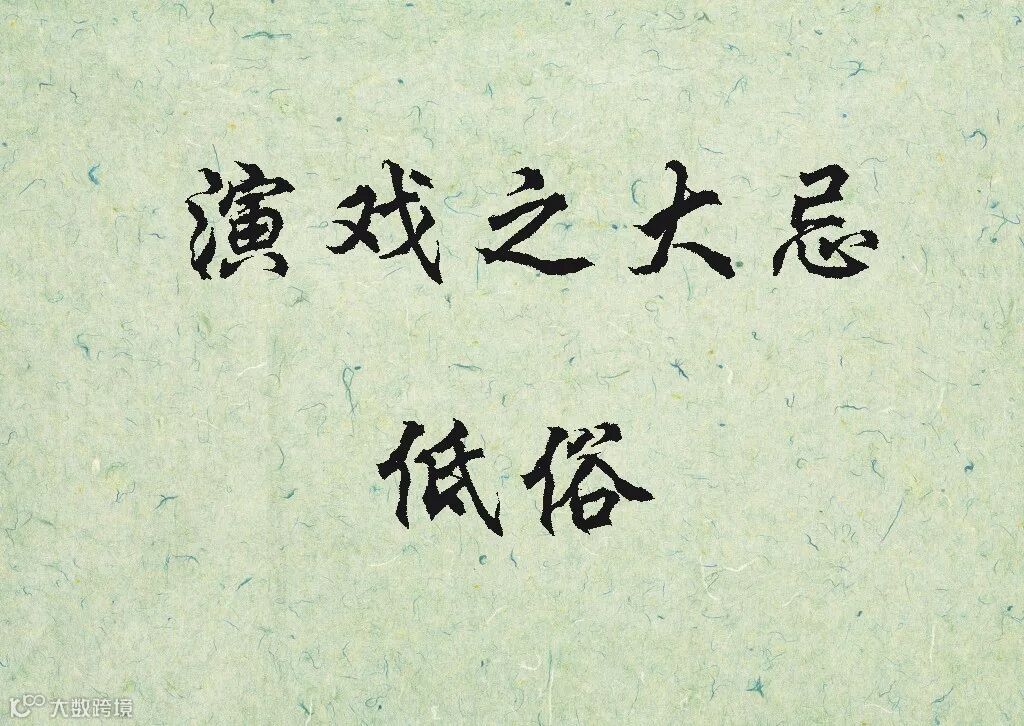 演戏之大忌
低俗
大数跨境